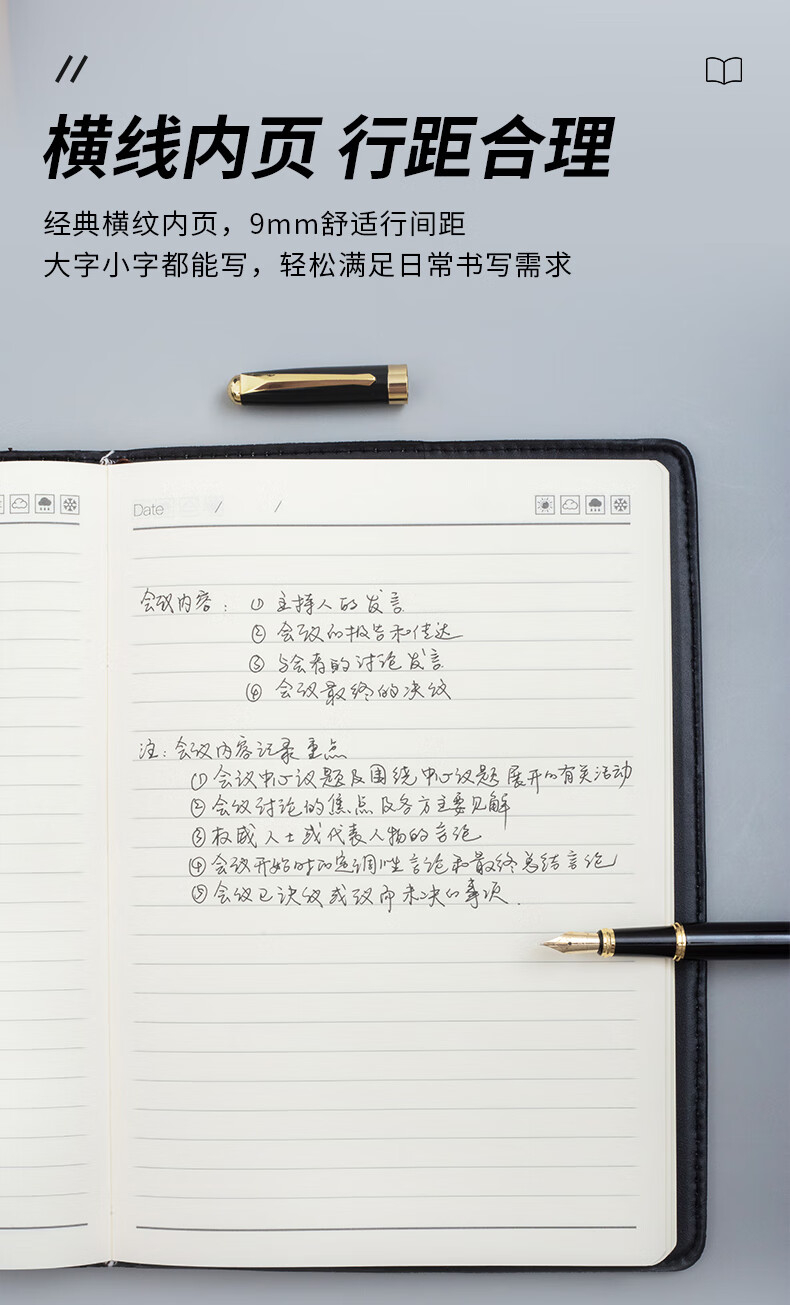 横线内页 行距合理
经典横纹内页，9mm舒适行间距
大字小字都能写，轻松满足日常书写需求
Date / /
会议内容：① 主持人的发言
② 会议的报告和传达
③ 与会者的讨论发言
④ 会议最终的决议
注：会议内容记录重点
① 会议中心议题及围绕中心议题展开的有关活动
② 会议讨论的焦点及各方主要见解
③ 权威人士或代表人物的言论
④ 会议开始时的定调性言论和最终总结言论
⑤ 会议已决议或议而未决的事项.